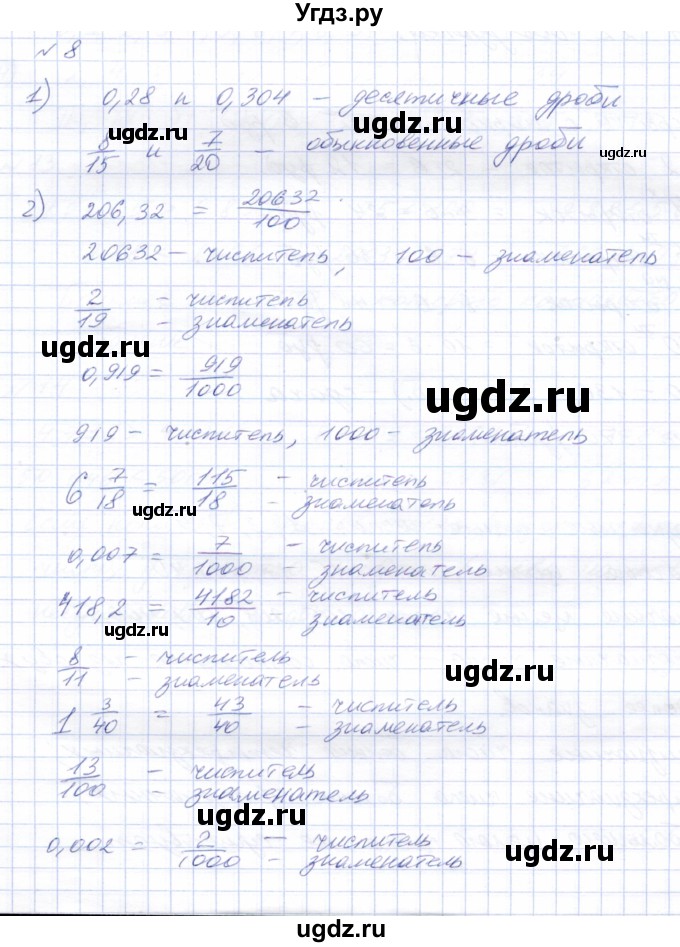 Угдз.ру
№ 8
1) 0,28 и 0,304 – десятичные дроби
8/15 и 7/20 – обыкновенные дроби
2) 206,32 = 20632/100.
20632 – числитель, 100 – знаменатель
2/19 – числитель – знаменатель
0,919 = 919/1000
919 – числитель, 1000 – знаменатель
6 7/18 = 115/18 – числитель – знаменатель
0,007 = 7/1000 – числитель – знаменатель
418,2 = 4182/10 – числитель – знаменатель
8/11 – числитель – знаменатель
1 3/40 = 43/40 – числитель – знаменатель
13/100 – числитель – знаменатель
0,002 = 2/1000 – числитель – знаменатель
ugdz.ru
ugdz.ru
ugdz.ru
ugdz.ru
ugdz.ru
ugdz.ru
ugdz.ru
ugdz.ru
ugdz.ru
ugdz.ru
ugdz.ru
ugdz.ru
ugdz.ru